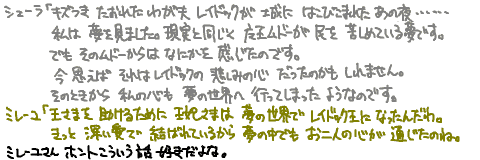 シェーラ「キズつき たおれた わが夫 レイドックが 城に はこびこまれた あの夜……
私は 夢を見ました。現実と同じく 魔王ムドーが 民を 苦しめている夢です。
でも そのムドーからは なにかを 感じたのです。
今 思えば それは レイドックの 悲しみの心 だったのかも しれません。
そのときから 私の心も 夢の世界へ 行ってしまった ようなのです。
ミレーユ「王さまを 助けるために 王妃さまは 夢の世界で レイドック王に なったんだわ。
きっと 深い愛で 結ばれているから 夢の中でも お二人の心が 通じたのね。
ミレーユさん ホントこういう話 好きだよな。